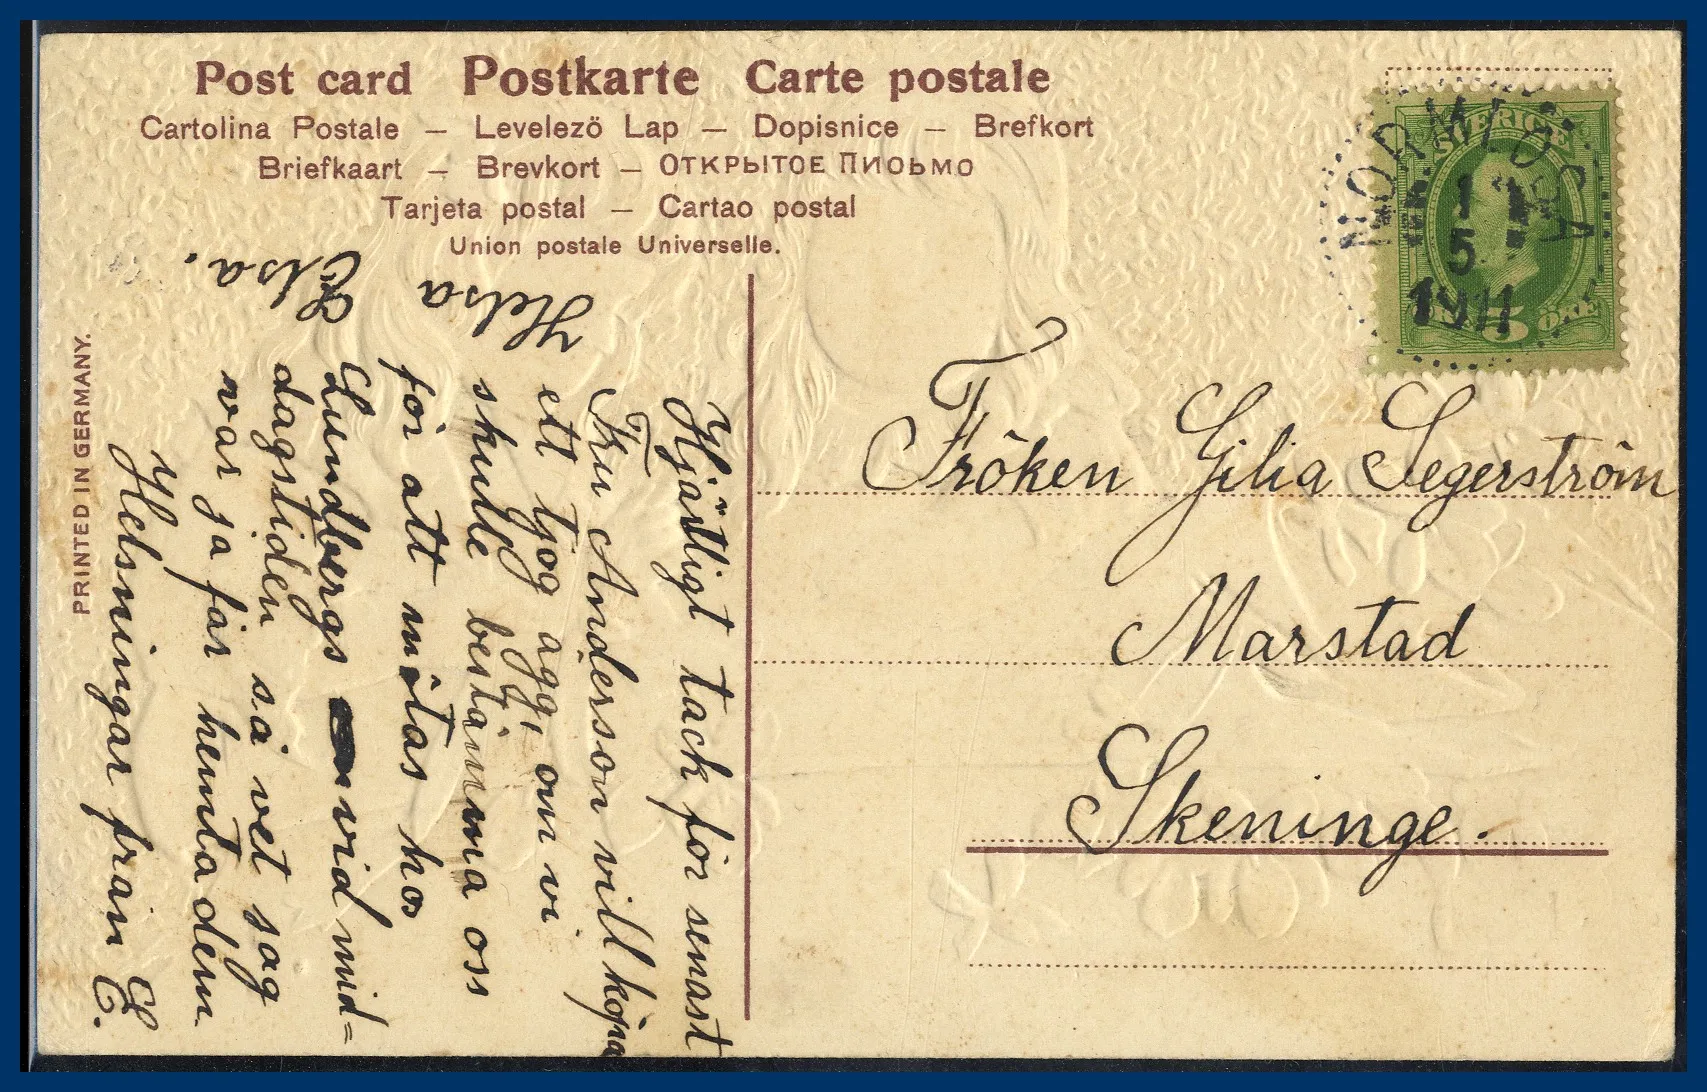 Post card Postkarte Carte postale
Cartolina Postale – Levelezö Lap – Dopisnice – Brefkort
Briefkaart – Brevkort – ОТКРЫТОЕ ПИОЬМО
Tarjeta postal – Cartao postal
Union postale Universelle.
PRINTED IN GERMANY.
SVERIGE
5 ÖRE
NORMLÖSA
1 5
1911
Fröken Gilia Segerström
Marstad
Skeninge.
Hjärtligt tack för senast
Fru Anderson vill köpa
ett tjog ägg, om vi
skulle bestämma oss
för att mötas hos
Lundbergs vid mid=
dagstiden så vet jag
var ja får hemta dem
Helsningar från E.
Helsa
Elsa.